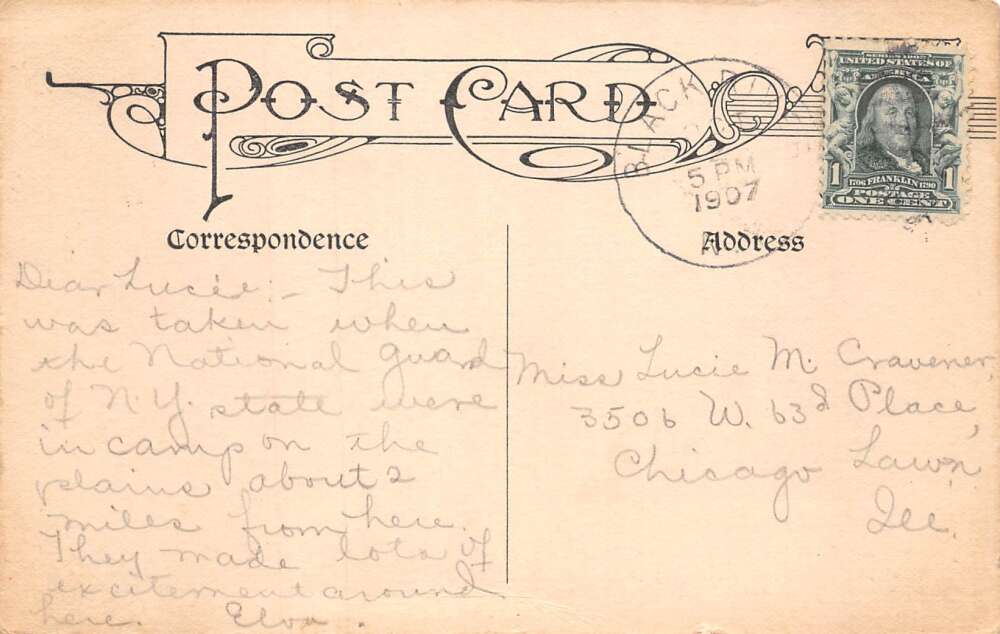 POST CARD
BLACK
5 PM
1907
N.Y.
UNITED STATES OF
AMERICA
1706 FRANKLIN 1790
POSTAGE
1 ONE CENT 1
Correspondence
Address
Dear Lucie:- This
was taken when
the National guard
of N.Y. state were
in camp on the
plains about 2
miles from here.
They made lots of
excitement around
here. Elva.
Miss Lucie M. Cravener,
3506 W. 63d Place,
Chicago Lawn
Ill.